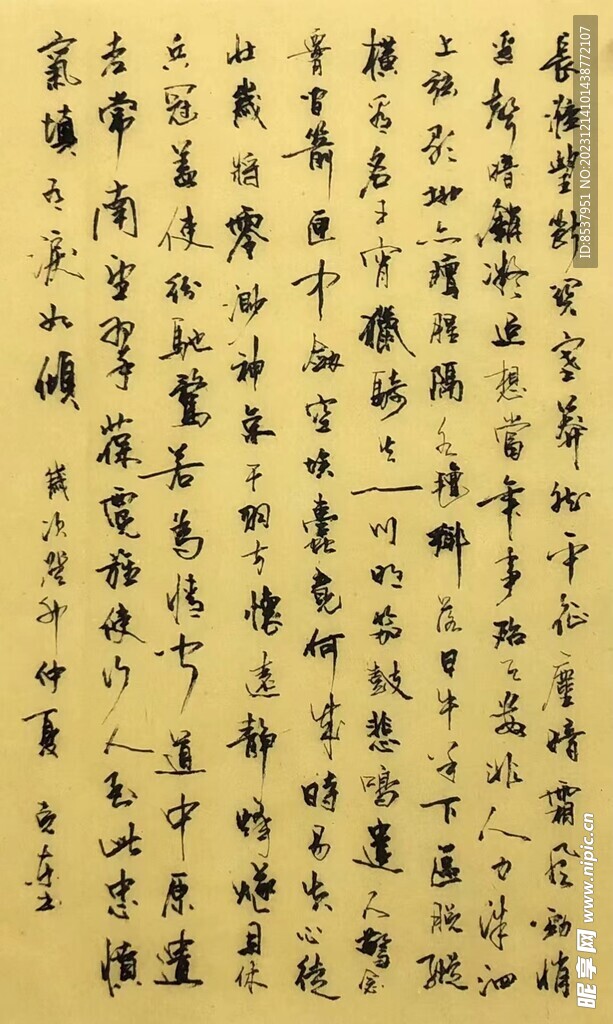 長淮望斷關塞莽然平征塵暗霜風勁悄
邊聲暗銷凝追想當年事殆天數非人力洙泗
上弦歌地亦膻腥隔水氈鄉落日牛羊下區脫縱
橫看名王宵獵騎火一川明笳鼓悲鳴遣人驚念
腰間箭匣中劍空埃蠹竟何成時易失心徒
壯歲將零渺神京干羽方懷遠靜烽燧且休
兵冠蓋使紛馳騖若為情聞道中原遺
老常南望翠葆霓旌使行人至此忠憤
氣填有淚如傾 歲次癸卯仲夏
ID:8537951 NO:20231214101438772107
昵享网 www.nipic.cn